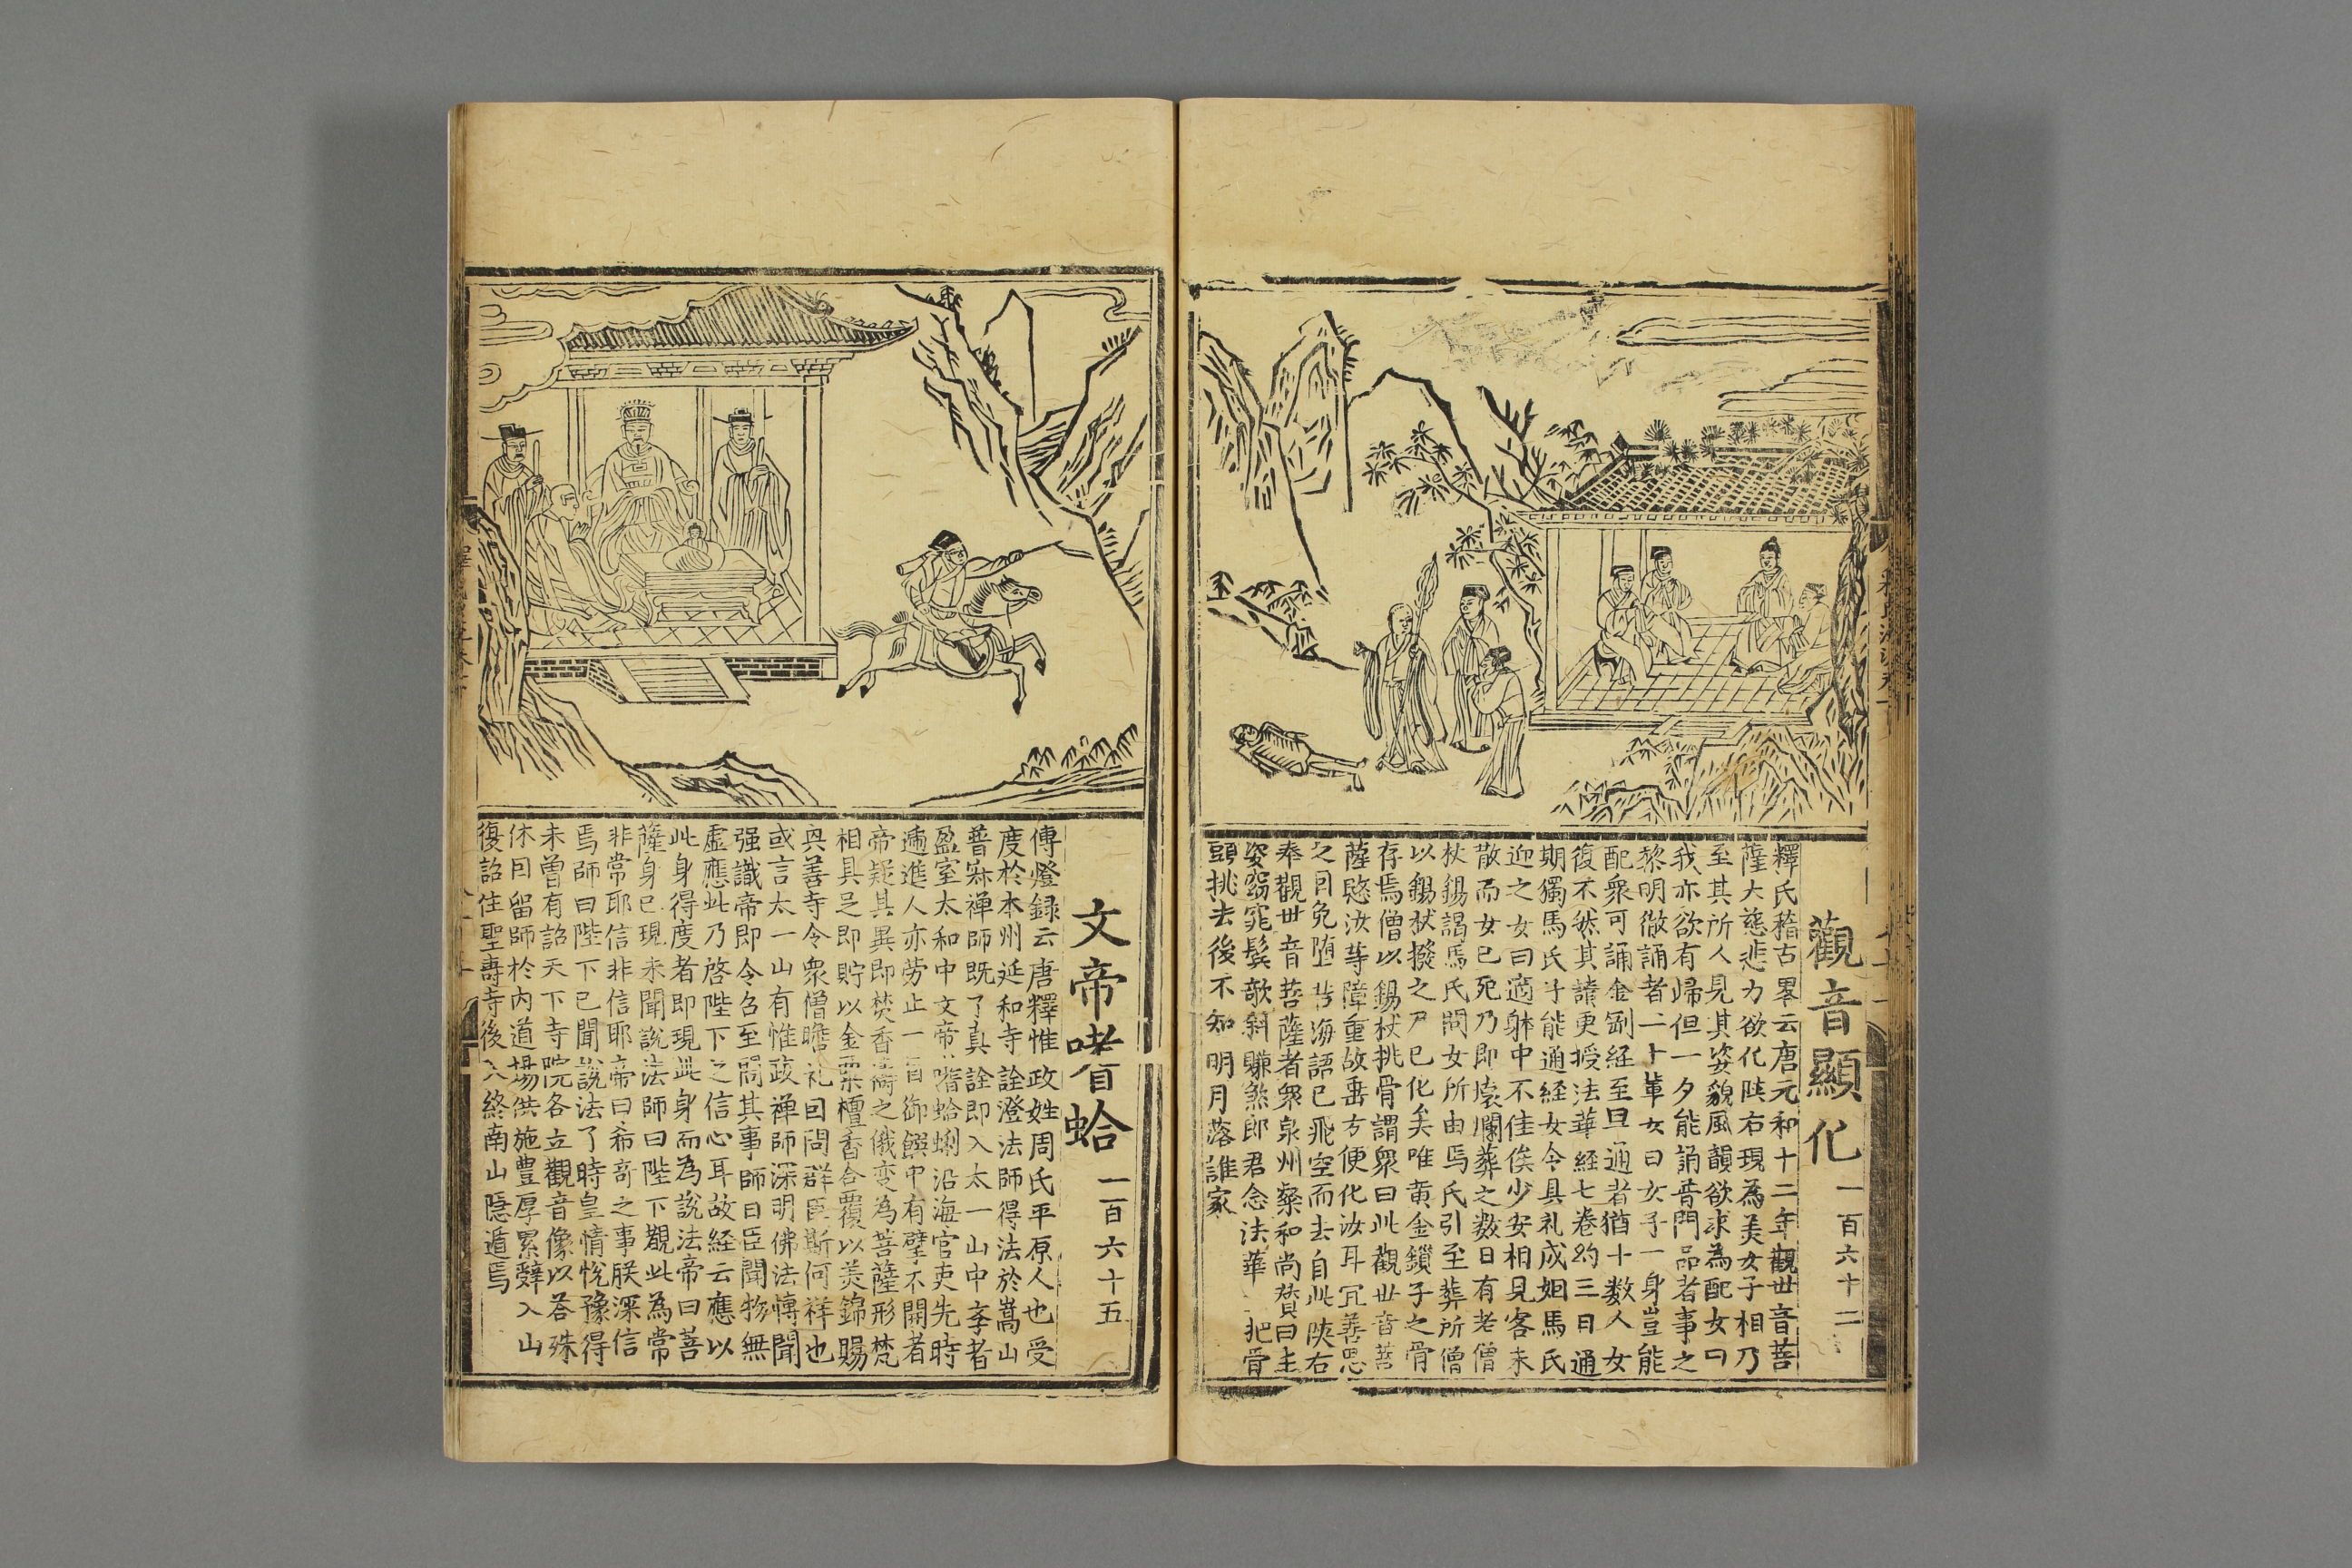 觀音顯化 一百六十二
釋氏稽古畧云唐元和十二年觀世音菩
薩大慈悲力欲化陝右現為美女子相乃
至其所人見其姿貌風韻欲求為配女曰
我亦欲有歸但一夕能誦普門品者事之
黎明徹誦者二十輩女曰女子一身豈能
配衆可誦金剛経至旦通者猶十數人女
復不然其請更授法華経七卷約三日通
期獨馬氏子能通経女令具礼成姻馬氏
迎之女曰適躰中不佳俟少安相見客未
散而女已死乃即壞爛葬之数日有老僧
杖錫謁馬氏問女所由馬氏引至葬所僧
以錫杖撥之尸已化矣唯黄金鎖子之骨
存焉僧以錫杖挑骨謂衆曰此觀世音菩
薩愍汝等障重故垂方便化汝耳冝善思
之囙免堕苦海語已飛空而去自此陝右
奉觀世音菩薩者衆泉州粲和尚賛曰
姿窈窕鬂欹斜賺煞郎君念法華把骨
頭挑去後不知明月落誰家
文帝嗜蛤 一百六十五
傳燈録云唐釋惟政姓周氏平原人也受
度於本州延和寺詮澄法師得法於嵩山
普寂禅師既了真詮即入太一山中李者
盈室太和中文帝嗜蛤蜊沿海官吏先時
逓進人亦劳止一日御饌中有擘不開者
帝疑其異即焚香禱之俄变為菩薩形梵
相具足即貯以金粟檀香合覆以羙錦賜
興善寺令衆僧瞻礼囙問群臣斯何祥也
或言太一山有惟政禅師深明佛法慱聞
强識帝即令召至問其事師曰臣聞物無
虚應此乃啓陛下之信心耳故経云應以
此身得度者即現此身而為說法帝曰菩
薩身已現未聞說法師曰陛下覩此為常
非常耶信非信耶帝曰希竒之事朕深信
焉師曰陛下已聞說法了時皇情悅豫得
未曽有詔天下寺院各立觀音像以荅殊
休囙留師於内道場供施豊厚累辭入山
復詔住聖壽寺後入終南山隱遁焉